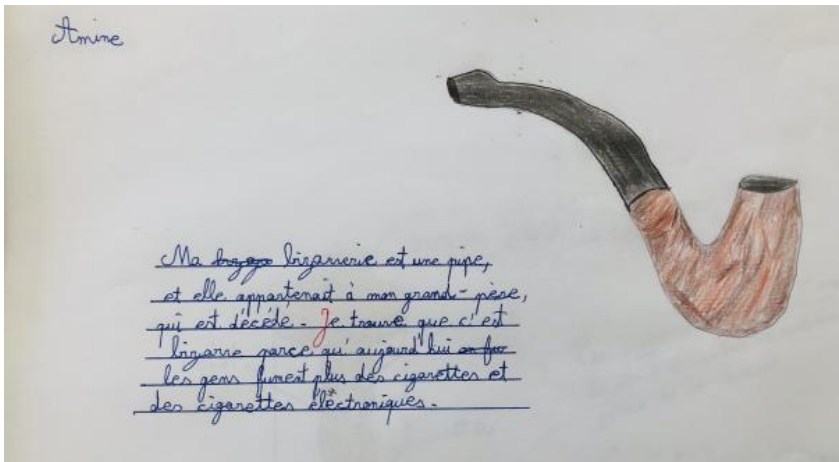 Amine
Ma bizarrerie est une pipe,
et elle appartenait à mon grand-père,
qui est décédé. Je trouve que c'est
bizarre parce qu'aujourd'hui
les gens fument plus des cigarettes et
des cigarettes électroniques.